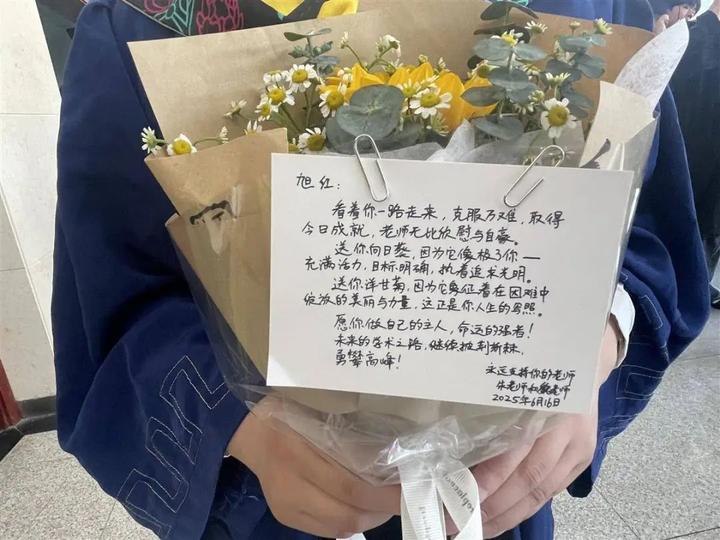 旭红：
看着你一路走来，克服万难，取得
今日成就，老师无比欣慰与自豪。
送你向日葵，因为它像极了你——
充满活力，目标明确，执着追求光明。
送你洋甘菊，因为它象征着在困难中
绽放的美丽与力量，这正是你人生的写照。
愿你做自己的主人，命运的强者！
未来的学术之路，继续披荆斩棘，
勇攀高峰！
永远支持你的老师
老师和 老师
2025年6月16日